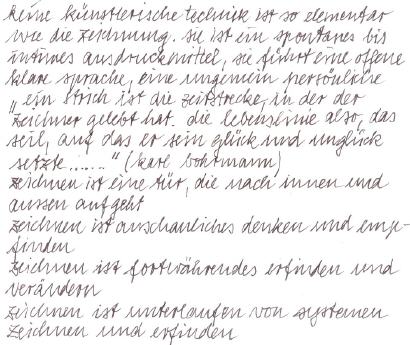 keine künstlerische technik ist so elementar
wie die zeichnung. sie ist ein spontanes bis
intimes ausdruckmittel, sie führt eine offene
klare sprache, eine ungemein persönliche
„ein strich ist die zeitstrecke, in der der
zeichner gelebt hat. die lebenslinie also, das
seil, auf das er sein glück und unglück
setzte......." (karl bohrmann)
zeichnen ist eine tür, die nach innen und
aussen aufgeht
zeichnen ist anschauliches denken und emp-
finden
zeichnen ist fortwährendes erfinden und
verändern
zeichnen ist unterlaufen von systemen
zeichnen und erfinden